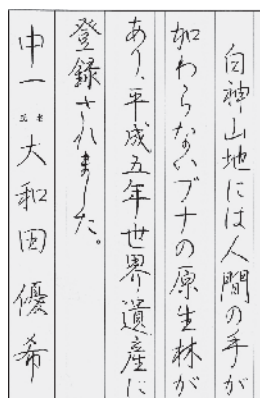 白神山地には人間の手が
加わらないブナの原生林が
あり、平成五年世界遺産に
登録されました。
中一 大和田優希